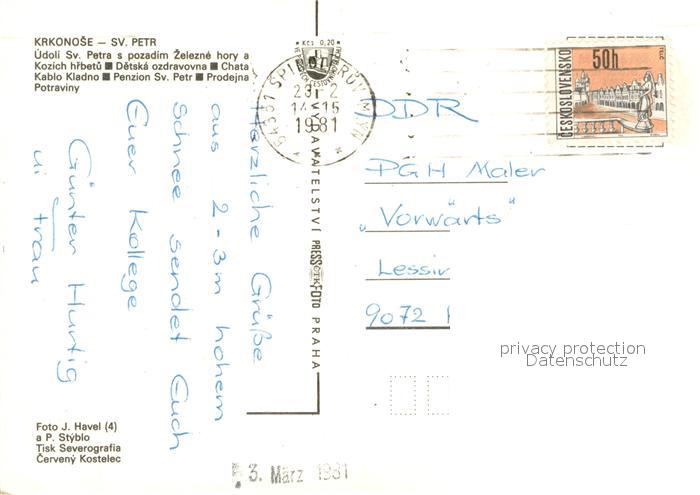 KRKONOŠE — SV. PETR
Údolí Sv. Petra s pozadím Železné hory a
Kozích hřbetů ■ Dětská ozdravovna ■ Chata
Kablo Kladno ■ Penzion Sv. Petr ■ Prodejna
Potraviny
Herzliche Grüße
aus 2-3m hohem
Schnee sendet Euch
Euer Kollege
Günter Hurtig
Foto J. Havel (4)
a P. Stýblo
Tisk Severografia
Červený Kostelec
Kčs 0,20
VYDAVATELSTVÍ PRESSFOTO PRAHA
543 51
23.-2
14-15
1981
ČESKOSLOVENSKO
50h
TELČ
DDR
PGH Maler
„Vorwärts"
Lessin
9072
privacy protection
Datenschutz
3. März 1981